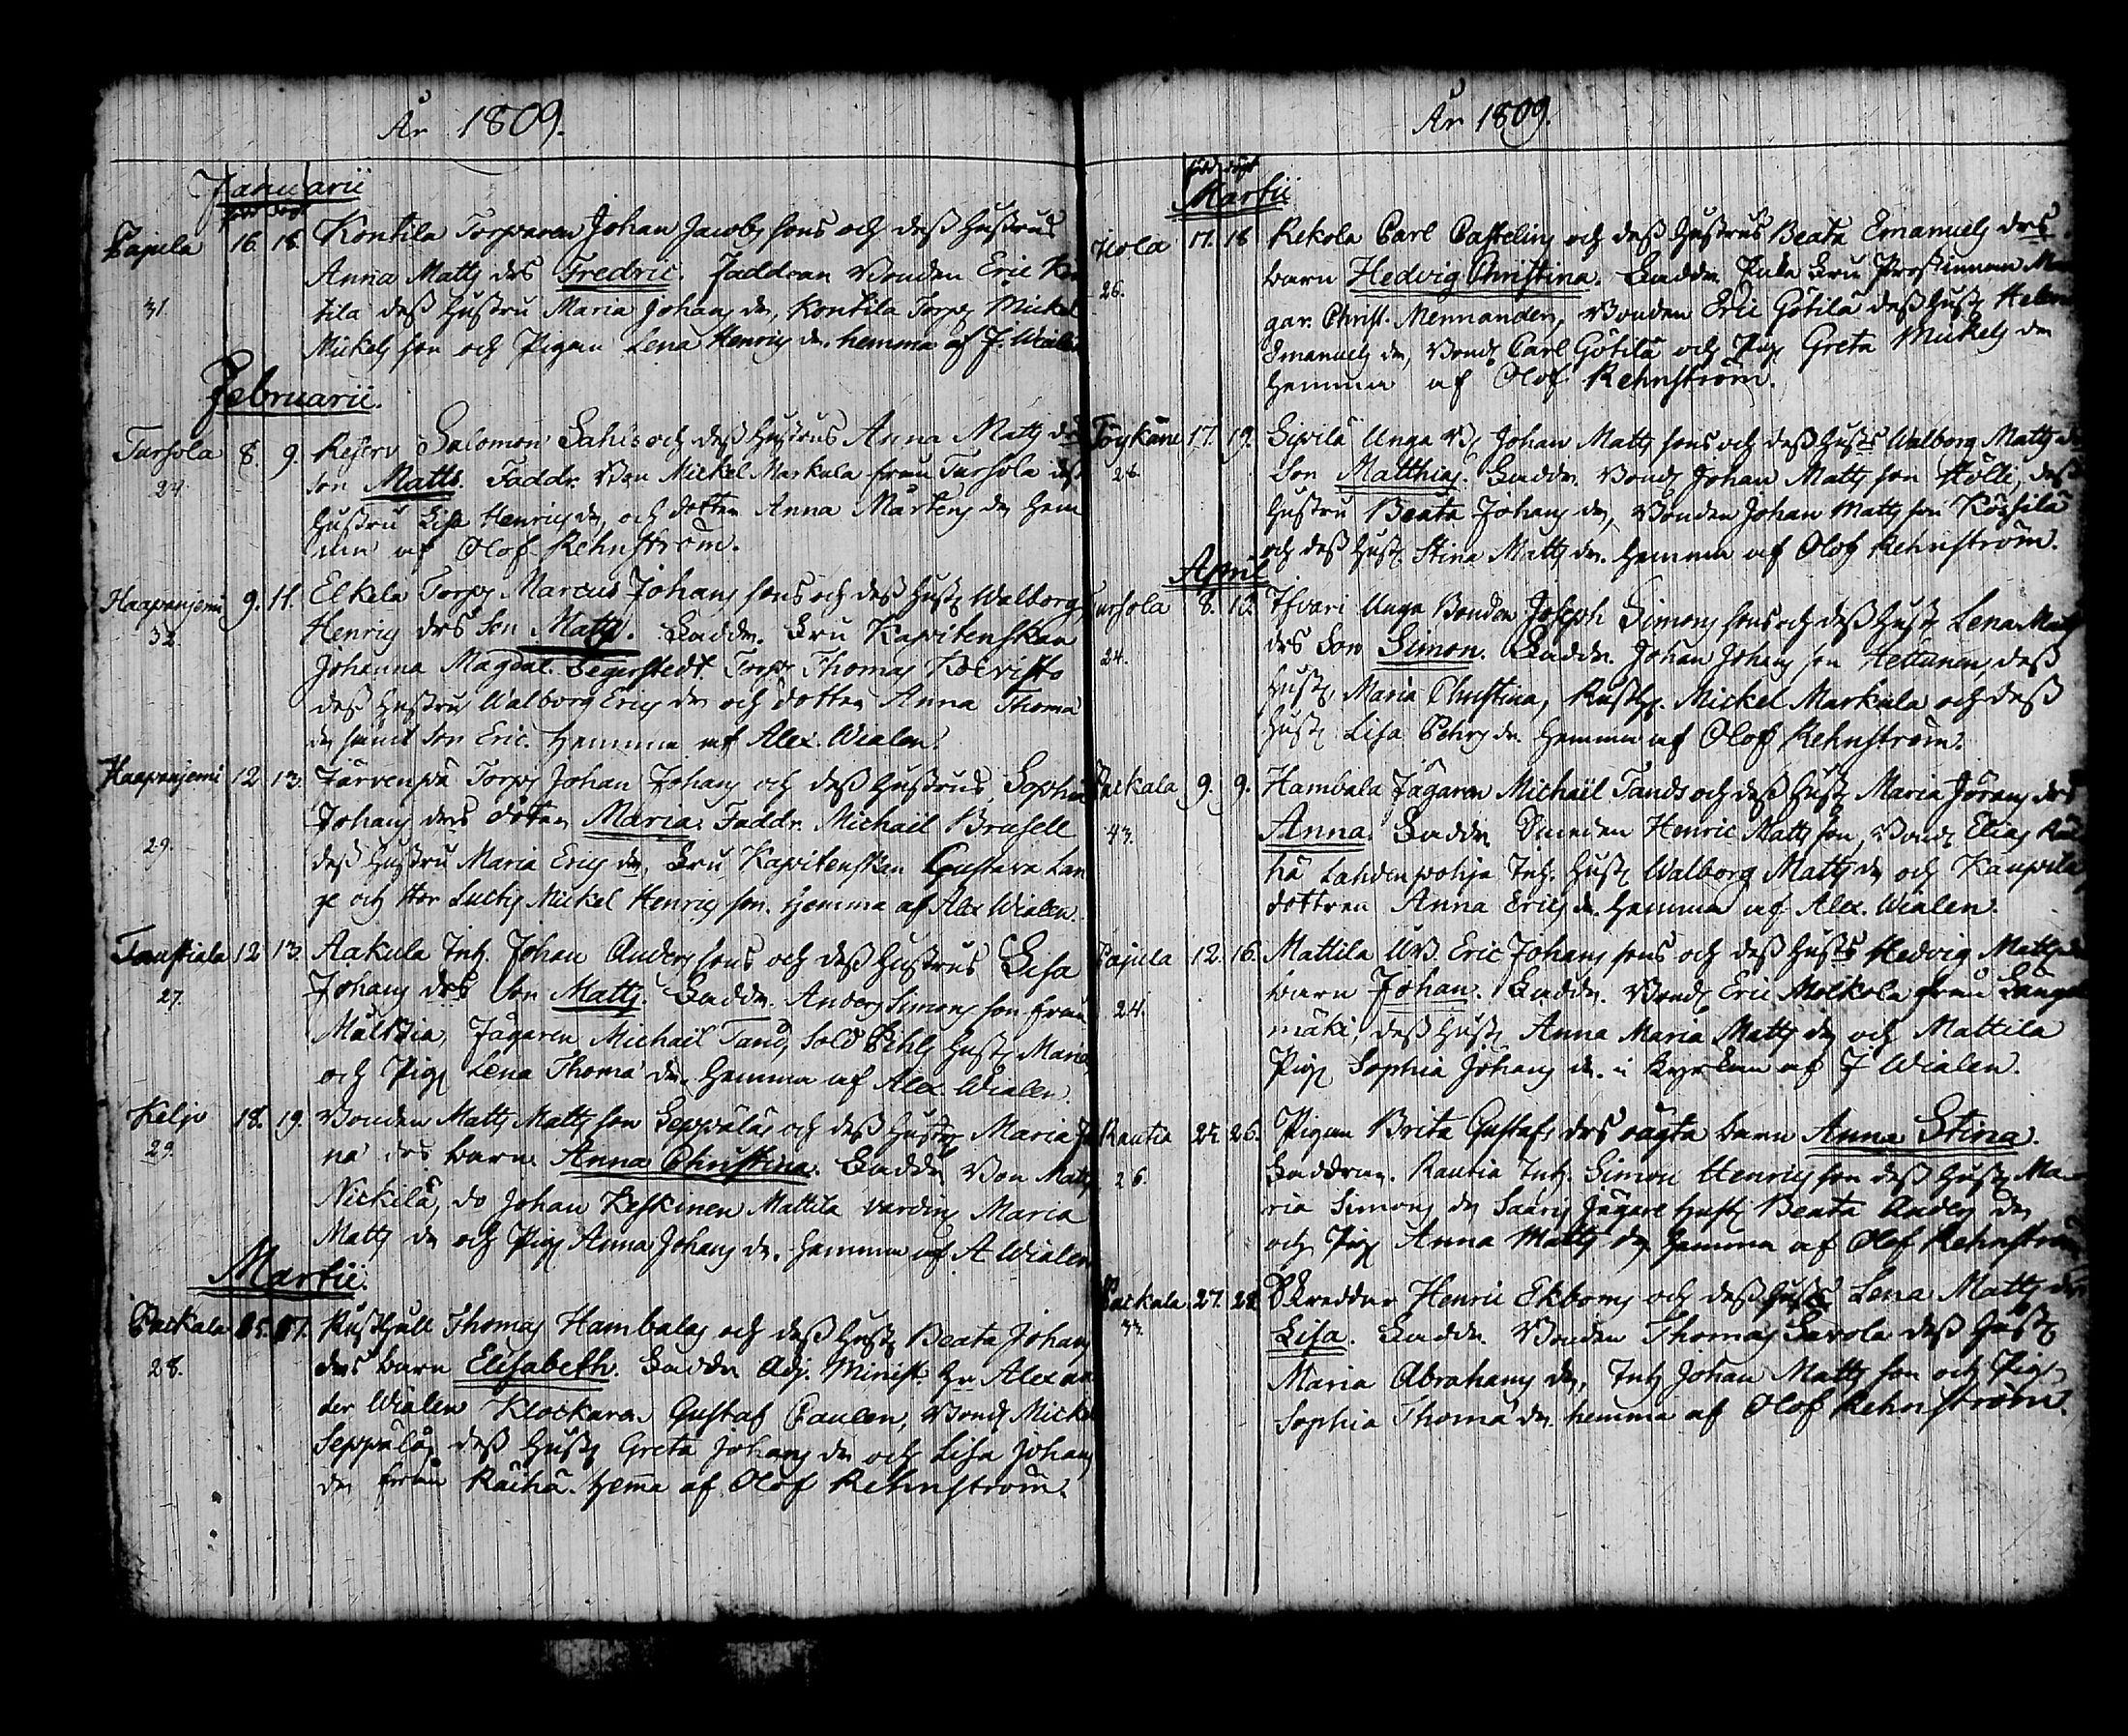 År 1809.
Januarii
född döpt
Pajula 16. 18. Kontila Torparen Johan Jacobs sons och dess Hustrus
31. Anna Matts drs Fredric. Faddran Bonden Eric Kon
tila dess Hustru Maria Johans dr, Kontila Torp. Mickel
Mickels son och Pigan Lena Henrics dr. hemma af J. Wialen
Februarii.
Tursola 8. 9. Reserv Salomon Sahls och dess Hustrus Anna Matts drs
24. son Matts. Faddr. Bon Mickel Markula från Tursola dess
Hustru Lisa Henrics dr, och dotter Anna Mårtens dr hem
ma af Olof Rehnström.
Haapanjemi 9. 11. Elkela Torp. Marcus Johans sons och dess Hust. Walborg
32. Henrics drs son Matts. Faddr. Fru Kapitenskan
Johanna Magdal. Segerstedt. Torp. Thomas Koevisto
dess Hustru Walborg Erics dr och dotter Anna Thomæ
dr samt son Eric. Hemma af Alex. Wialen.
Haapanjemi 12 13. Järvenpä Torp. Johan Johans och dess Hustrus Sophia
29. Johans drs dotter Maria. Faddr. Michail Brusell
dess Hustru Maria Erics dr, Fru Kapitenskan Gustava Lan
ge och Mickel Henrics son. Hemma af Alex Wialen.
Taustiala 12 13. Aakula Inh. Johan Anders sons och dess Hustrus Lisa
27. Johans drs son Matts. Faddr. Anders Simons son från
Jägaren Michail Tand, Sold Hust. Maria
och Pig. Lena Thomæ dr. Hemma af Alex. Wialen.
Keljo 18. 19. Bonden Matts Matts son Seppälås och dess Hust. Maria
29. drs barn Anna Christina. Faddr. Bon Matts
Nickilä, do Johan Keskinen Mattila värdin Maria
Matts dr och Pig. Anna Johans dr. Hemma af A Wialen
Martii.
Packala 5. 7. Rusthåll Thomas Hambalas och dess Hust. Beata Johans
28. drs barn Elisabeth. Faddr. Adj. Minist. Hr Alexan
der Wialen Klockaren Gustaf Paulen, Bond. Mickel
Seppälä, dess Hust. Greta Johans dr och Lisa Johans
dr från Räihä. Hema af Olof Rehnström.
År 1809.
född döpt
Martii
Uskola 17. 18 Rekola Carl Castelins och dess Hustrus Beata Emanuels drs
26. barn Hedvig Christina. Faddr. Fru Prostinnan Mar
gar. Christ. Mennander, Bonden Eric Götilä dess Hust. Helena
Emanuels dr, Bond. Carl Götilä och Pig. Greta Mickels dr
Hemma af Olof Rehnström.
17. 19. Sipilä Unga B. Johan Matts sons och dess Husts Walborg Matts dr
28 Son Matthias. Faddr. Bond. Johan Matts son Hölli, dess
Hustru Beata Johans dr, Bonden Johan Matts son
och dess Hust. Stina Matts dr. Hemma af Olof Rehnström.
April
Tursola 8. 12 Ifvari Unga Bonden Joseph Simons sons och dess Hust. Lena Matts
24. drs Son Simon. Faddr. Johan Johans son Hettunen, dess
Hust. Maria Christina, Rusth. Mickel Markula och dess
Hust. Lisa Pehrs dr. Hemma af Olof Rehnström.
Packala 9. 9. Hambala Jägaren Michaël Tands och dess Hust. Maria Jörans drs
43. Anna. Faddr. Smeden Henric Matts son, Bond. Elias Räi
hä Lahdenpohja Inh. Hust. Walborg Matts dr och Kaupila
dottren Anna Erics dr. Hemma af Alex. Wialen.
Pajula 12. 16. Mattila UB. Eric Johans sons och dess Husts Hedvig Matts dr
24. barn Johan. Faddr. Bond. Eric Molkola från
mäki, dess Hust. Anna Maria Matts dr och Mattila
Pig. Sophia Johans dr. i Kyrkan af J Wialen.
Rautia 24. 26. Pigan Brita Gustafs drs oägta barn Anna Stina.
26. Faddran. Rautia Inh. Simon Henrics son dess Hust. Ma-
ria Simons dr Saaris Jägare Hust. Beata Anders dr
och Pig. Anna Matts dr, Hemma af Olof Rehnström
Packala 27. 28 Skreddar Henric Ekboms och dess Husts Lena Matts drs
33. Lisa. Faddr. Bonden Thomas Savola dess Hust.
Maria Abrahams dr, Inh. Johan Matts son och Pig.
Sophia Thomæ dr. hemma af Olof Rehnström.